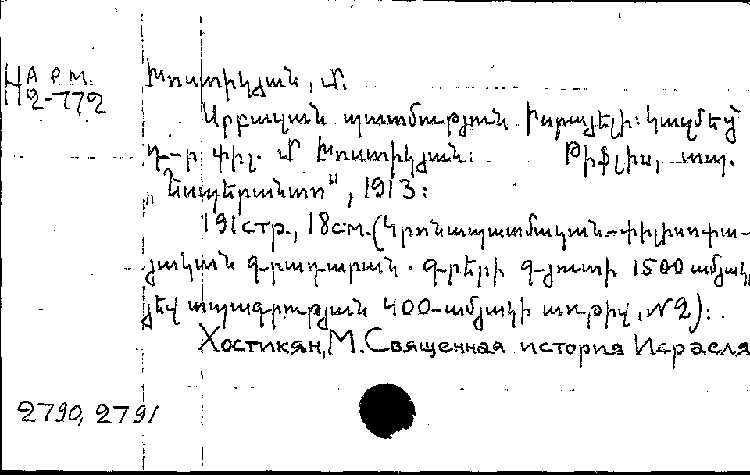 НАРМ.
H2-772
Խոստիկյան, Մ.
Սրբազան պատմություն Իսրայելի: Կազմեց՝
դ-ր փիլ. Մ Խոստիկյան: Թիֆլիս, տպ.
„Էսպերանտո", 1913:
191стр., 18см. (Կրոնապատմական-փիլիսոփա-
յական գրադարան. գրերի գյուտի 1500 ամյակ,
յեվ տպագրության 400-ամյակի առթիվ, №2):
Хостикян, М. Священная история Исраеля
2790, 2791